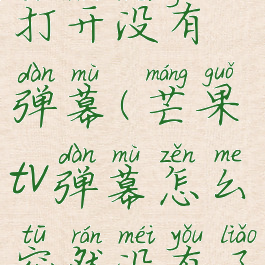 打开没有
dàn mù máng guǒ
弹幕(芒果
dàn mù zěn me
tv弹幕怎么
tū rán méi yǒu liǎo
突然没有了